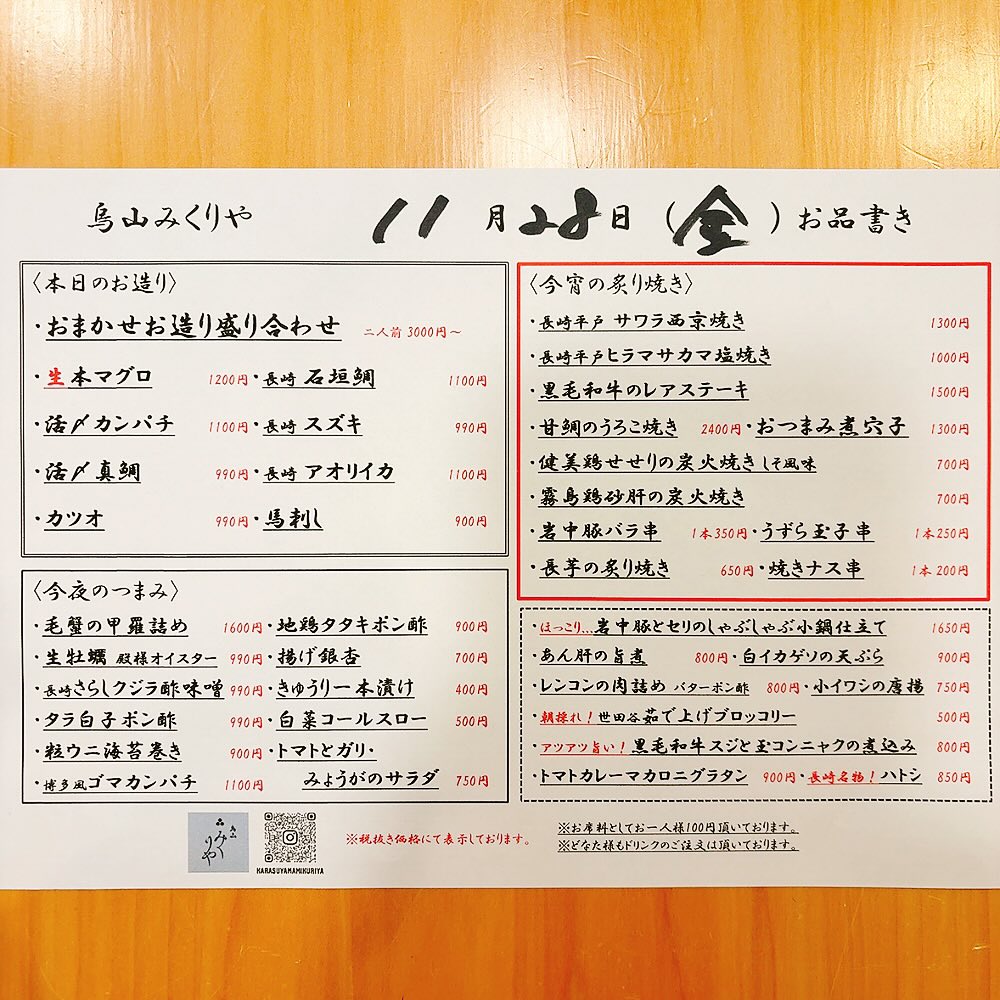 烏山みくりや 11月28日（金）お品書き
〈本日のお造り〉
・おまかせお造り盛り合わせ 二人前 3000円～
・生本マグロ 1200円・長崎 石垣鯛 1100円
・活〆カンパチ 1100円・長崎 スズキ 990円
・活〆真鯛 990円・長崎 アオリイカ 1100円
・カツオ 990円・馬刺し 900円
〈今夜のつまみ〉
・毛蟹の甲羅詰め 1600円・地鶏タタキポン酢 900円
・生牡蠣 殿様オイスター 990円・揚げ銀杏 700円
・長崎さらしクジラ酢味噌 990円・きゅうり一本漬け 400円
・タラ白子ポン酢 990円・白菜コールスロー 500円
・粒ウニ海苔巻き 900円・トマトとガリ・
・博多風ゴマカンパチ 1100円 みょうがのサラダ 750円
〈今宵の炙り焼き〉
・長崎平戸 サワラ西京焼き 1300円
・長崎平戸ヒラマサカマ塩焼き 1000円
・黒毛和牛のレアステーキ 1500円
・甘鯛のうろこ焼き 2400円・おつまみ煮穴子 1300円
・健美鶏せせりの炭火焼き しそ風味 700円
・霧島鶏砂肝の炭火焼き 700円
・岩中豚バラ串 1本350円・うずら玉子串 1本250円
・長芋の炙り焼き 650円・焼きナス串 1本 200円
・ほっこり…岩中豚とセリのしゃぶしゃぶ小鍋仕立て 1650円
・あん肝の旨煮 800円・白イカゲソの天ぷら 900円
・レンコンの肉詰め バターポン酢 800円・小イワシの唐揚 750円
・朝採れ！世田谷茹で上げブロッコリー 500円
・アツアツ旨い！黒毛和牛スジと玉コンニャクの煮込み 800円
・トマトカレーマカロニグラタン 900円・長崎名物！ハトシ 850円
烏山
みくりや
KARASUYAMAMIKURIYA
※税抜き価格にて表示しております。
※お席料としてお一人様100円頂いております。
※どなた様もドリンクのご注文は頂いております。